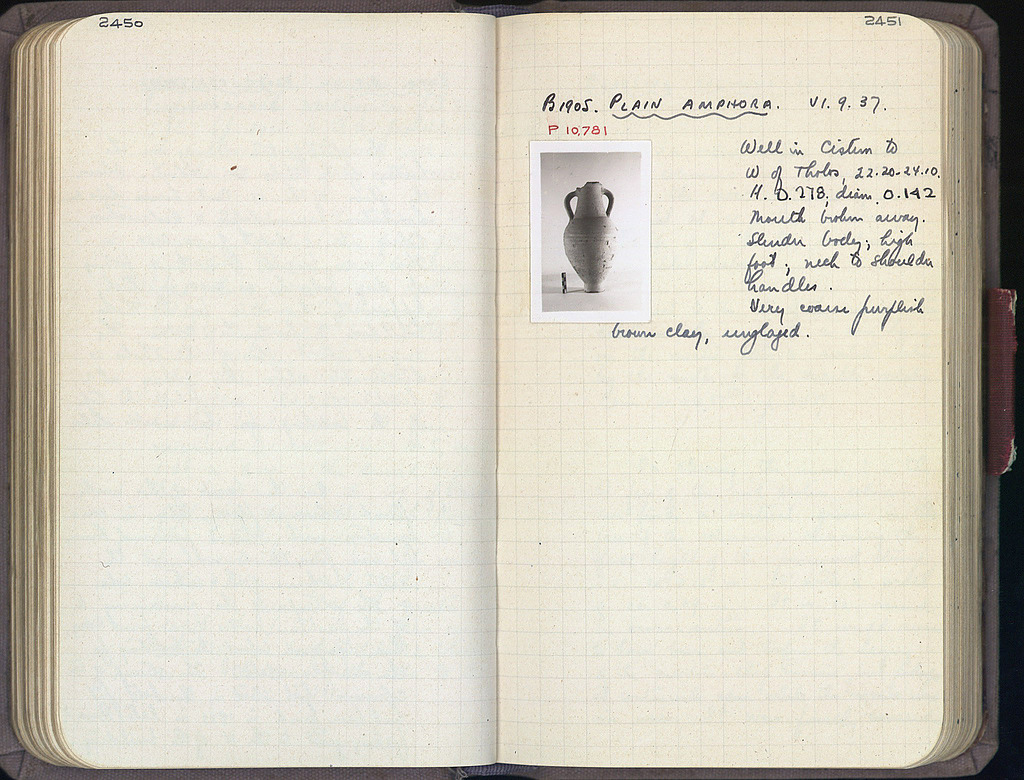 2450
2451
B1905. PLAIN AMPHORA. VI. 9. 37.
P 10,781
Well in Cistern to
W of Tholos, 22.20-24.10.
H. 0.278, diam. 0.142
Mouth broken away.
Slender body; high
foot; neck to shoulder
handles.
Very coarse purplish
brown clay, unglazed.